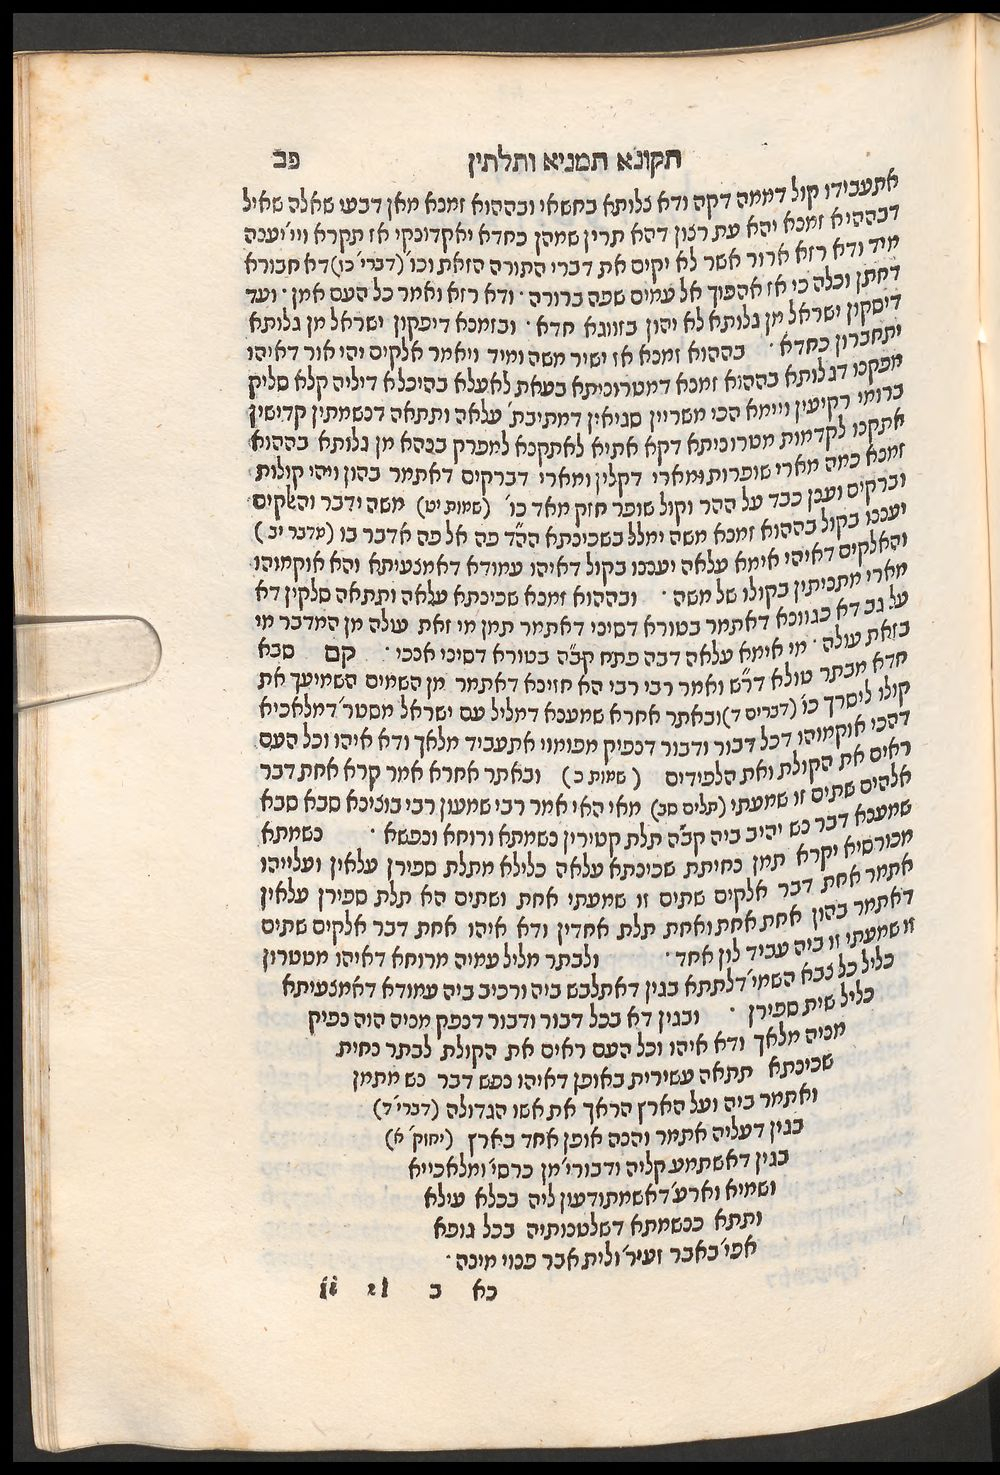 תקונא תמניא ותלתין פב
אתעבידו קול דממה דקה ודא צלותא בחשאי ובההוא זמנא מאן דבעי שאלה שאיל
דבההיא זמנא יהא עת רצון דהא תרין שמהן כחדא יאקדונקי אז תקרא ויי׳ יענה
מיד ודא רזא ארור אשר לא יקים את דברי התורה הזאת וכו׳ (דברי׳ כז) דא חבורא
דחתן וכלה כי אז אהפוך אל עמים שפה ברורה · ודא רזא ואמר כל העם אמן · ועד
דיסקון ישראל מן גלותא לא יהון בזווגא חדא · ובזמנא דיפקון ישראל מן גלותא
יתחברון כחדא · בההוא זמנא אז ישיר משה ומיד ויאמר אלקים יהי אור דאיהו
מפקנו דגלותא בההוא זמנא דמטרוניתא בעאת לאעלא בהיכלא דיליה קלא סליק
ברומי רקיעין ויימא הכי משריין סגיאין דמתיבת׳ עלאה ותתאה דנשמתין קדישין
אתקנו לקדמות מטרוניתא דקא אתיא לאתקנא למפרק בנהא מן גלותא בההוא
זמנא כמה מארי שופרות ומארי דקלין ומארי דברקים דאתמר בהון ויהי קולות
וברקים וענן כבד על ההר וקול שופר חזק מאד כו׳ (שמות יט) משה ידבר והאלקים
יעננו בקול בההוא זמנא משה ימלל בשכינתא הה״ד פה אל פה אדבר בו (מדבר יב)
והאלקים דאיהי אימא עלאה יעננו בקול דאיהו עמודא דאמצעיתא והא אוקמוהו
מארי מתניתין בקולו של משה · ובההוא זמנא שכינתא עלאה ותתאה סלקין דא
על גב דא כגוונא דאתמר בטורא דסיני דאתמר תמן מי זאת עולה מן המדבר מי
בזאת עולה · מי אימא עלאה דבה פתח קב״ה בטורא דסיני אנכי · קם סבא
חדא מבתר טולא דר״ש ואמר רבי רבי הא חזינא דאתמר מן השמים השמיעך את
קולו ליסרך כו׳ (דברים ד) ובאתר אחרא שמענא דמליל עם ישראל מסטר׳ דמלאכיא
דהכי אוקמוהו דכל דבור ודבור דנפיק מפומוי אתעביד מלאך ודא איהו וכל העם
ראים את הקולת ואת הלפידים (שמות כ) ובאתר אחרא אמר קרא אחת דבר
אלהים שתים זו שמעתי (תלים סב) מאי האי אמר רבי שמעון רבי בוצינא סבא סבא
שמענא דבר נש יהיב ביה קב״ה תלת קטירין נשמתא ורוחא ונפשא · נשמתא
מכורסיא יקרא תמן נחיתת שכינתא עלאה כלילא מתלת ספירן עלאין ועלייהו
אתמר אחת דבר אלקים שתים זו שמעתי אחת ושתים הא תלת ספירן עלאין
דאתמר בהון אחת אחת ואחת תלת אחדין ודא איהו אחת דבר אלקים שתים
זו שמעתי זו ביה עביד לון אחד · ולבתר מליל עמיה מרוחא דאיהו מטטרון
כליל כל צבא השמי׳ דלתתא בגין דאתלבש ביה ורכיב ביה עמודא דאמצעיתא
כליל שית ספירן · ובגין דא בכל דבור ודבור דנפק מניה הוה נפיק
מניה מלאך ודא איהו וכל העם ראים את הקולת לבתר נחית
שכינתא תתאה עשירית באופן דאיהו נפש דבר נש מתמן
ואתמר ביה ועל הארץ הראך את אשו הגדולה (דברי׳ ד)
בגין דעליה אתמר והנה אופן אחד בארץ (יחזק׳ א)
בגין דאשתמע קליה ודבורי׳ מן כרסי׳ ומלאכייא
ושמיא וארע׳ דאשמתודעון ליה בכלא עילא
ותתא כנשמתא דשלטנותיה בכל גופא
אפי׳ באבר זעיר׳ ולית אבר פנוי מינה ·
כא ב